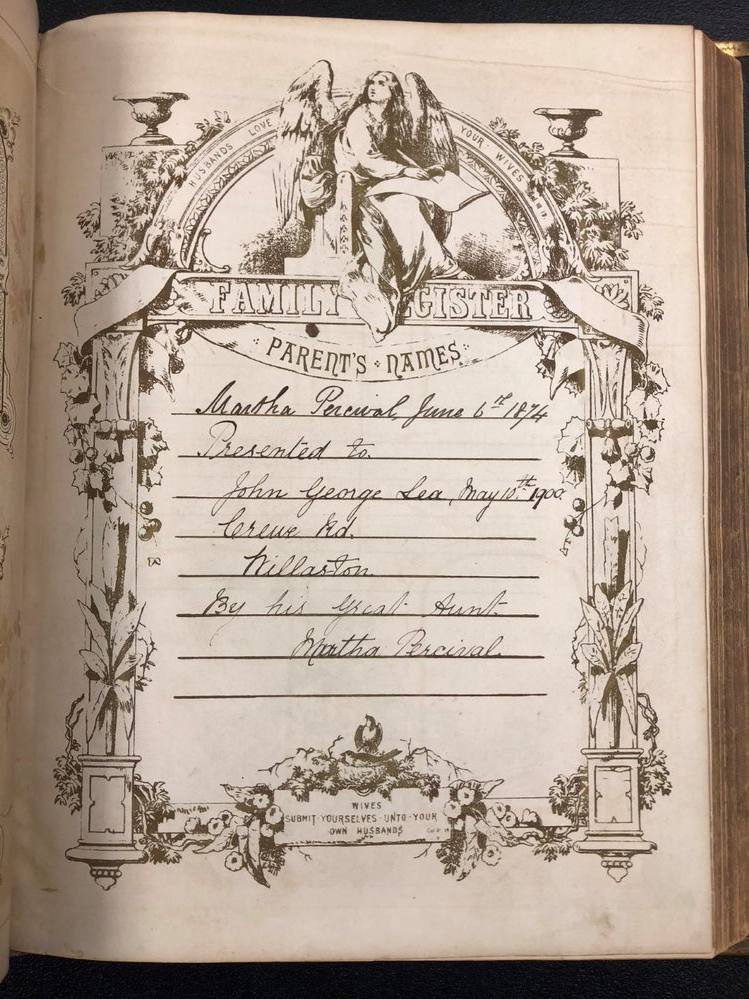 HUSBANDS LOVE YOUR WIVES
FAMILY REGISTER
PARENT'S NAMES
Martha Percival, June 6th 1874
Presented to
John George Lea, May 10th 1900
Crewe Rd.
Willaston
By his Great Aunt
Martha Percival.
WIVES
SUBMIT YOURSELVES UNTO YOUR
OWN HUSBANDS